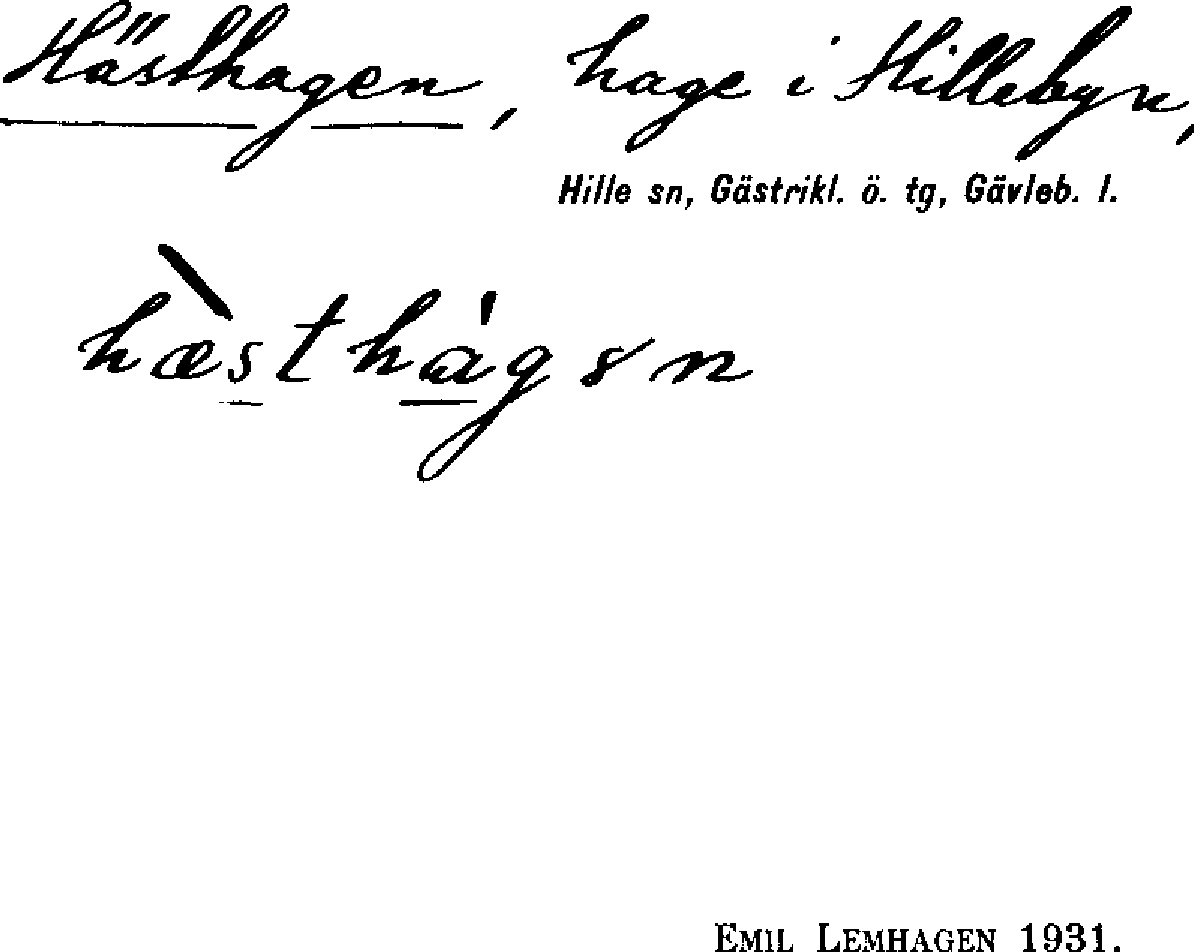 Hästhagen, hage i Hillebyn,
Hille sn, Gästrikl. ö. tg, Gävleb. l.
hæ̀sthágən
EMIL LEMHAGEN 1931.